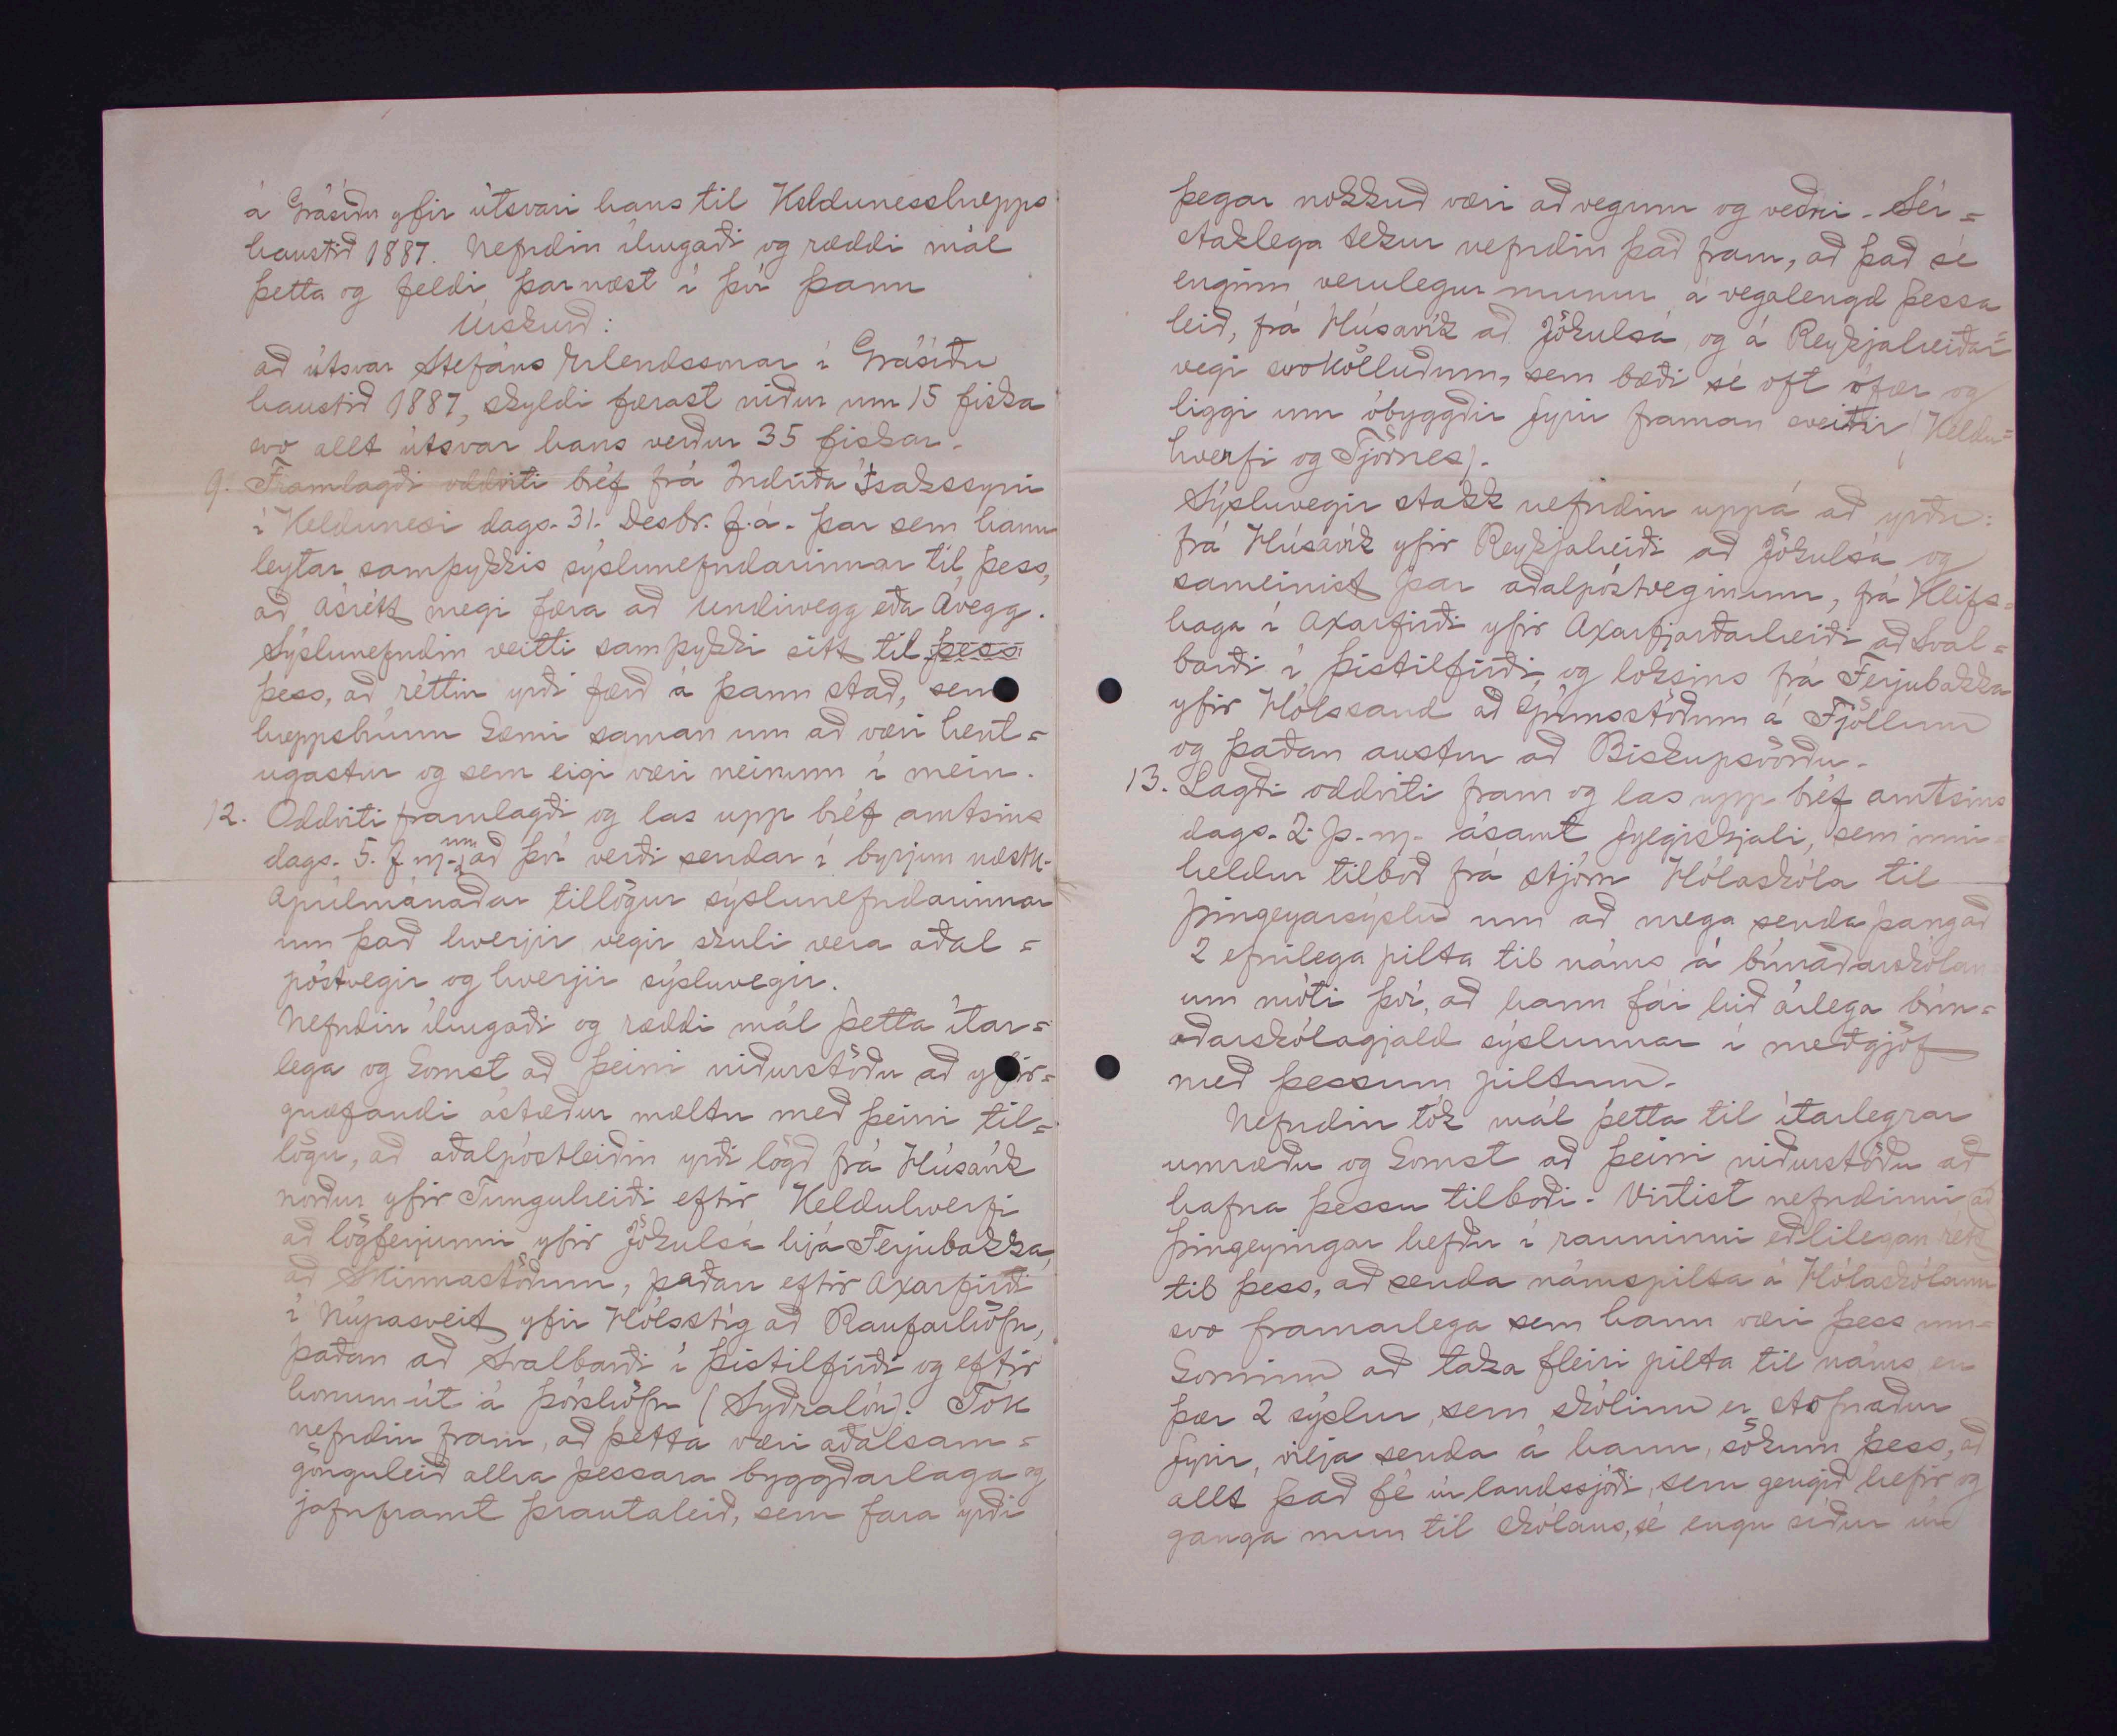 á Grásíðu yfir útsvari hans til Keldunesshrepps
haustið 1887. Nefndin íhugaði og ræddi mál
þetta og feldi þarnæst í því þann
Úrskurð:
að útsvar Stefáns Erlendssonar í Grásíðu
haustið 1887, skyldi færast niður um 15 fiska
svo allt útsvar hans verður 35 fiskar.
9. Framlagði oddviti bréf frá Indriða Ísakssyni
í Keldunesi dags. 31. Desbr. f.á. þar sem hann
leytar samþykkis sýslunefndarinnar til þess,
að Ásrétt megi færa að Undirvegg eða Ávegg.
Sýslunefndin veitti samþykki sitt til þess
þess, að réttin yrði færð á þann stað, sem
hreppsbúum kæmi saman um að væri hent=
ugastur og sem eigi væri neinum í mein.
12. Oddviti framlagði og las upp bréf amtsins
dags. 5. f.m. um að því verði sendar í byrjun næstk.
Aprílmánaðar tillögur sýslunefndarinnar
um það hverjir vegir skuli vera aðal=
póstvegir og hverjir sýsluvegir.
Nefndin íhugaði og ræddi mál þetta ítar=
lega og komst að þeirri niðurstöðu að yfir=
gnæfandi ástæður mæltu með þeirri til=
lögu, að aðalpóstleiðin yrði lögð frá Húsavík
norður yfir Tunguheiði eftir Kelduhverfi
að lögferjunni yfir Jökulsá hjá Ferjubakka,
að Skinnastöðum, þaðan eftir Axarfirði
í Núpasveit yfir Hólsstíg að Raufarhöfn,
þaðan að Svalbarði í Þistilfirði og eftir
honum út á Þórshöfn (Syðralón). Tók
nefndin fram, að þetta væri aðalsam=
gönguleið allra þessara byggðarlaga og
jafnframt þrautaleið, sem fara yrði
þegar nokkuð væri að vegum og veðri. Sér=
staklega tekur nefndin það fram, að það sé
enginn verulegur munur á vegalengd þessa
leið, frá Húsavík að Jökulsá, og á Reykjaheiðar=
vegi svokölluðum, sem bæði sé oft ófær og
liggi um óbyggðir fyrir framan sveitir (Keldu=
hverfi og Tjörnes).
Sýsluvegir stakk nefndin uppá að yrðu:
frá Húsavík yfir Reykjaheiði að Jökulsá og
sameinist þar aðalpóstveginum, frá Klifs=
haga í Axarfirði yfir Axarfjarðarheiði að Sval=
barði í Þistilfirði, og loksins frá Ferjubakka
yfir Hólssand að Grímsstöðum á Fjöllum
og þaðan austur að Biskupsvörðu.
13. Lagði oddviti fram og las upp bréf amtsins
dags. 2. þ.m. ásamt fylgiskjali, sem inni=
heldur tilboð frá stjórn Hólaskóla til
Þingeyarsýslu um að mega senda þangað
2 efnilega pilta til náms á búnaðarskólan=
um móti því, að hann fái hið árlega bún=
aðarskólagjald sýslunnar í meðgjöf
með þessum piltum.
Nefndin tók mál þetta til ítarlegrar
umræðu og komst að þeirri niðurstöðu að
hafna þessu tilboði. Virtist nefndinni að
Þingeyingar hefðu í rauninni eðlilegan rétt
til þess, að senda námspilta á Hólaskólann
svo framarlega sem hann væri þess um=
kominn að taka fleiri pilta til náms, en
þær 2 sýslur, sem skólinn er stofnaður
fyrir, vilja senda á hann, sökum þess, að
allt það fé úr landssjóði, sem gengið hefir og
ganga mun til skólans, sé engu síður úr